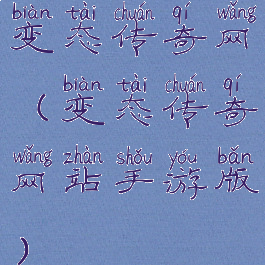 biàn tài chuán qí wǎng
变态传奇网
biàn tài chuán qí
（变态传奇
wǎng zhàn shǒu yóu bǎn
网站手游版
）